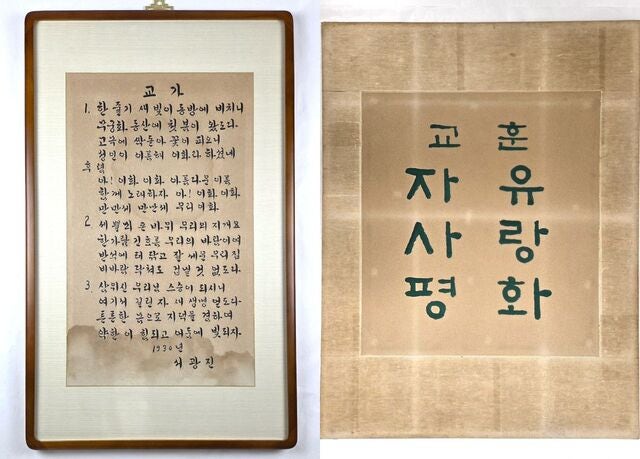 교 가
1. 한 줄기 새 빛이 동방에 비치니
무궁화 동산에 첫 봄이 왔도다
고목에 싹 돋아 꽃이 피오니
성인이 이름해 이화라 하셨네
후렴
아! 이화 이화 아름다운 이름
함께 노래하자 아! 이화 이화
만만세 만만세 우리 이화
2. 세 뿔의 큰 바위 우리의 지개요
한가람 긴 흐름 우리의 바람이여
반석에 터 닦고 잘 세운 우리 집
비바람 닥쳐도 겁낼 것 없도다
3. 삼위신 우리님 스승이 되시니
여기서 길린 자 새 생명 얻도다
튼튼한 몸으로 지덕을 겸하며
약한 이 힘되고 어둠에 빛되자.
1930년
광진
교 훈
자 유
사 랑
평 화